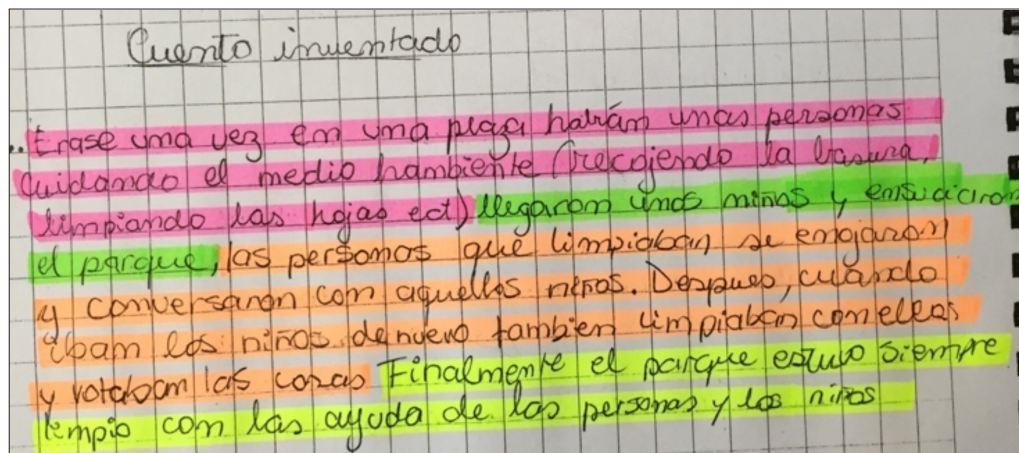 Cuento inventado
..Erase una vez en una plaza habían unas personas
Cuidando el medio hambiente (recojendo la basura,
limpiando las hojas ect) llegaron unos niños y ensuciaron
el parque, las personas que limpiaban se enojaron
y conversaron con aquellos niños. Despues, cuando
iban los niños denuevo tambien limpiaban con ellos
y votaban las cosas Finalmente el parque estuvo siempre
limpio con las ayuda de las personas y los niños